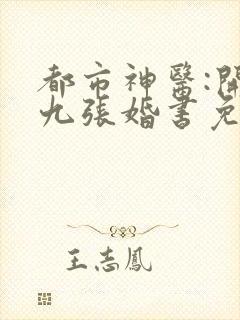 都市神醫:開
九張婚書免
王志鳳